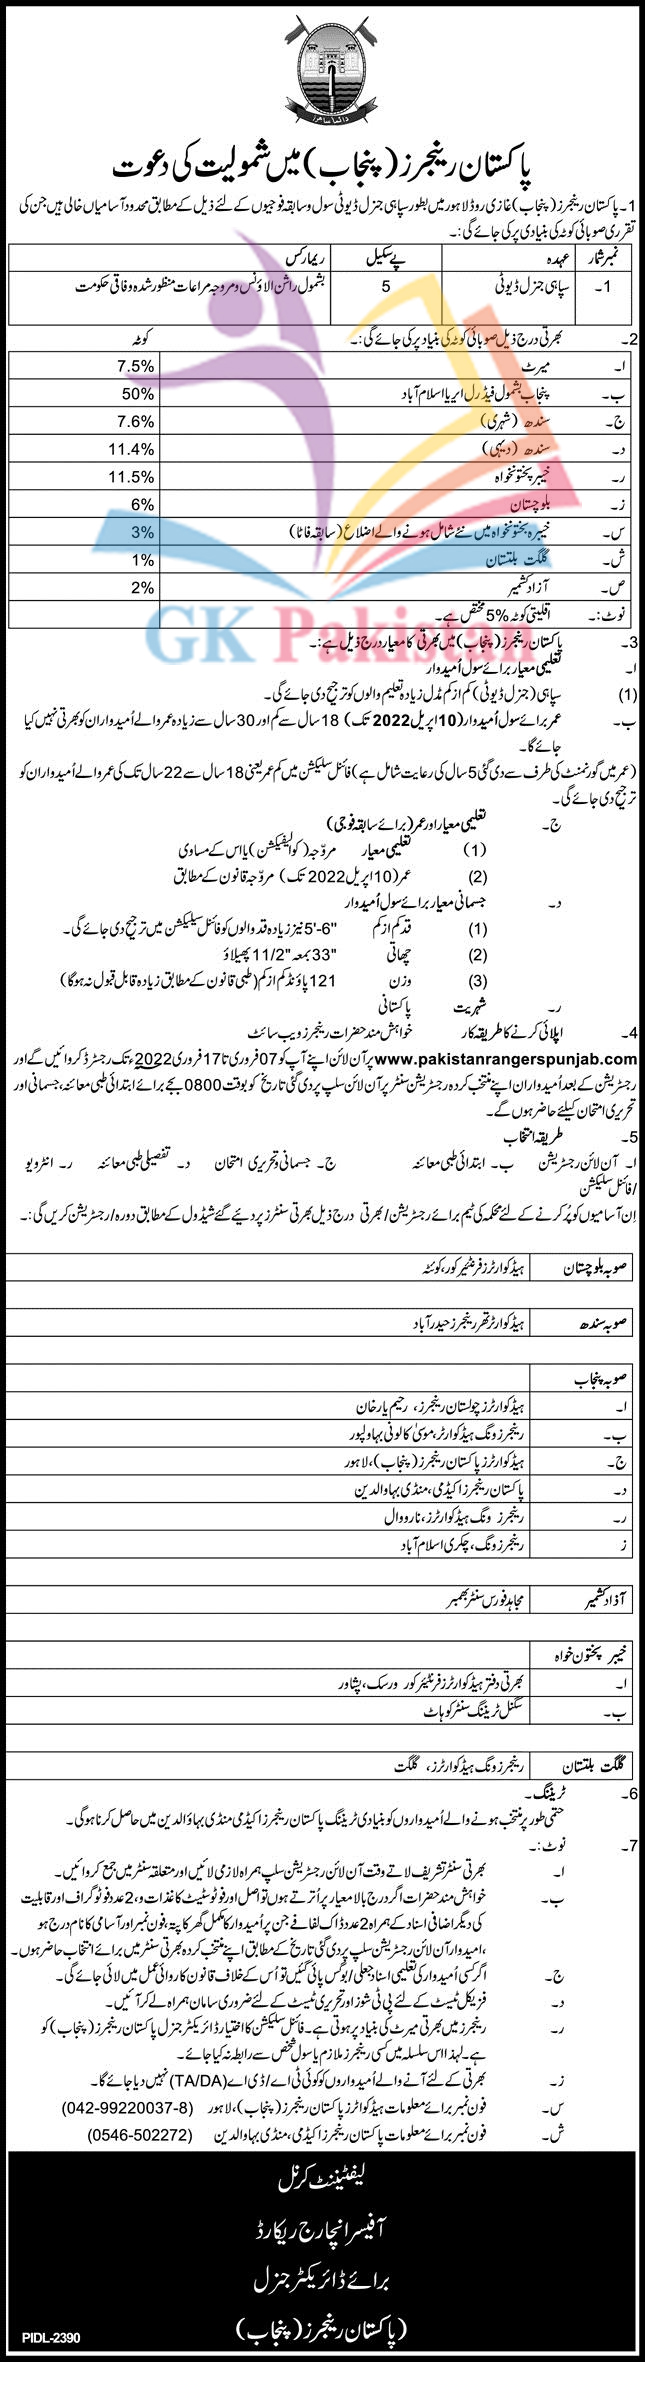 پاکستان رینجرز (پنجاب) میں شمولیت کی دعوت
1۔ پاکستان رینجرز (پنجاب) غازی روڈ لاہور میں بطور سپاہی جنرل ڈیوٹی سول و سابقہ فوجیوں کے لئے ذیل کے مطابق محدود آسامیاں خالی ہیں جن کی
تقرری صوبائی کوٹہ کی بنیادی پر کی جائے گی:۔
نمبر شمار عہدہ پے سکیل ریمارکس
1۔ سپاہی جنرل ڈیوٹی 5 بشمول راشن الاؤنس و مروجہ مراعات منظور شدہ وفاقی حکومت
2۔ بھرتی درج ذیل صوبائی کوٹہ کی بنیاد پر کی جائے گی:۔ کوٹہ
ا۔ میرٹ 7.5%
ب۔ پنجاب بشمول فیڈرل ایریا اسلام آباد 50%
ج۔ سندھ (شہری) 7.6%
د۔ سندھ (دیہی) 11.4%
ر۔ خیبر پختونخواہ 11.5%
ز۔ بلوچستان 6%
س۔ خیبرہ پختونخواہ میں نئے شامل ہونے والے اضلاع (سابقہ فاٹا) 3%
ش۔ گلگت بلتستان 1%
ص۔ آزاد کشمیر 2%
نوٹ:۔ اقلیتی کوٹہ 5% مختص ہے۔
GK Pakistan
3۔ پاکستان رینجرز (پنجاب) میں بھرتی کا معیار درج ذیل ہے:۔
ا۔ تعلیمی معیار برائے سول اُمیدوار
(1) سپاہی (جنرل ڈیوٹی) کم از کم مڈل زیادہ تعلیم والوں کو ترجیح دی جائے گی۔
ب۔ عمر برائے سول اُمیدوار (10 اپریل 2022 تک) 18 سال سے کم اور 30 سال سے زیادہ عمر والے اُمیدواران کو بھرتی نہیں کیا
جائے گا۔
(عمر میں گورنمنٹ کی طرف سے دی گئی 5 سال کی رعایت شامل ہے) فائنل سلیکشن میں کم عمر یعنی 18 سال سے 22 سال تک کی عمر والے اُمیدواران کو
ترجیح دی جائے گی۔
ج۔ تعلیمی معیار اور عمر (برائے سابقہ فوجی)
(1) تعلیمی معیار مروّجہ (کوالیفکیشن) یا اس کے مساوی
(2) عمر (10 اپریل 2022 تک) مروّجہ قانون کے مطابق
د۔ جسمانی معیار برائے سول اُمیدوار
(1) قد کم از کم 5'-6" نیز زیادہ قد والوں کو فائنل سیلیکشن میں ترجیح دی جائے گی۔
(2) چھاتی 33" بمعہ 11/2" پھیلاؤ
(3) وزن 121 پاؤنڈ کم از کم (طبی قانون کے مطابق زیادہ قابل قبول نہ ہوگا)
ر۔ شہریت پاکستانی
4۔ اپلائی کرنے کا طریقہ کار خواہش مند حضرات رینجرز ویب سائٹ
www.pakistanrangerspunjab.com پر آن لائن اپنے آپ کو 07 فروری تا 17 فروری 2022ء تک رجسٹرڈ کروائیں گے اور
رجسٹریشن کے بعد اُمیدواران اپنے منتخب کردہ رجسٹریشن سنٹر پر آن لائن سلپ پر دی گئی تاریخ کو بوقت 0800 بجے برائے ابتدائی طبی معائنہ، جسمانی اور
تحریری امتحان کیلئے حاضر ہوں گے۔
5۔ طریقہ انتخاب
ا۔ آن لائن رجسٹریشن ب۔ ابتدائی طبی معائنہ ج۔ جسمانی و تحریری امتحان د۔ تفصیلی طبی معائنہ ر۔ انٹرویو
/فائنل سلیکشن
اِن آسامیوں کو پُر کرنے کے لئے محکمہ کی ٹیم برائے رجسٹریشن/بھرتی درج ذیل بھرتی سنٹرز پر دیئے گئے شیڈول کے مطابق دورہ/رجسٹریشن کریں گی:۔
صوبہ بلوچستان ہیڈ کوارٹرز فرنٹیئر کور، کوئٹہ
صوبہ سندھ ہیڈ کوارٹر تھر رینجرز حیدرآباد
صوبہ پنجاب
ا۔ ہیڈ کوارٹرز چولستان رینجرز، رحیم یار خان
ب۔ رینجرز ونگ ہیڈ کوارٹر، موسیٰ کالونی بہاولپور
ج۔ ہیڈ کوارٹرز پاکستان رینجرز (پنجاب)، لاہور
د۔ پاکستان رینجرز اکیڈمی، منڈی بہاوالدین
ر۔ رینجرز ونگ ہیڈ کوارٹرز، نارووال
ز رینجرز ونگ، چکری اسلام آباد
آذاد کشمیر مجاہد فورس سنٹر بھمبر
خیبر پختون خواہ
ا۔ بھرتی دفتر ہیڈ کوارٹرز فرنٹیئر کور ورسک، پشاور
ب۔ سگنل ٹریننگ سنٹر کوہاٹ
گلگت بلتستان رینجرز ونگ ہیڈ کوارٹرز، گلگت
6۔ ٹریننگ۔
حتمی طور پر منتخب ہونے والے اُمیدواروں کو بنیادی ٹریننگ پاکستان رینجرز اکیڈمی منڈی بہاؤالدین میں حاصل کرنا ہوگی۔
7۔ نوٹ:۔
ا۔ بھرتی سنٹر تشریف لاتے وقت آن لائن رجسٹریشن سلپ ہمراہ لازمی لائیں اور متعلقہ سنٹر میں جمع کروائیں۔
ب۔ خواہش مند حضرات اگر درج بالا معیار پر اُترتے ہوں تو اصل اور فوٹو سٹیٹ کاغذات و، 2 عدد فوٹو گراف اور قابلیت
کی دیگر اضافی اسناد کے ہمراہ 2 عدد ڈاک لفافے جن پر اُمیدوار کا مکمل گھر کا پتہ، فون نمبر اور آسامی کا نام درج ہو
،امیدوار آن لائن رجسٹریشن سلپ پر دی گئی تاریخ کے مطابق اپنے منتخب کردہ بھرتی سنٹر میں برائے انتخاب حاضر ہوں۔
ج۔ اگر کسی اُمیدوار کی تعلیمی اسناد جعلی/بوگس پائی گئیں تو اُس کے خلاف قانون کاروائی عمل میں لائی جائے گی۔
د۔ فزیکل ٹیسٹ کے لئے پی ٹی شوز اور تحریری ٹیسٹ کے لئے ضروری سامان ہمراہ لے کر آئیں۔
ر۔ رینجرز میں بھرتی میرٹ کی بنیاد پر ہوتی ہے۔ فائنل سلیکشن کا اختیار ڈائریکٹر جنرل پاکستان رینجرز (پنجاب) کو
ہے۔ لہذا اس سلسلہ میں کسی رینجرز ملازم یا سول شخص سے رابطہ نہ کیا جائے۔
ز۔ بھرتی کے لئے آنے والے اُمیدواروں کو کوئی ٹی اے/ڈی اے (TA/DA) نہیں دیا جائے گا۔
س۔ فون نمبر برائے معلومات ہیڈ کوارٹرز پاکستان رینجرز (پنجاب)، لاہور (042-99220037-8)
ش۔ فون نمبر برائے معلومات پاکستان رینجرز اکیڈمی، منڈی بہاوالدین (0546-502272)
لیفٹیننٹ کرنل
آفیسر انچارج ریکارڈ
برائے ڈائریکٹر جنرل
(پاکستان رینجرز (پنجاب)
PIDL-2390